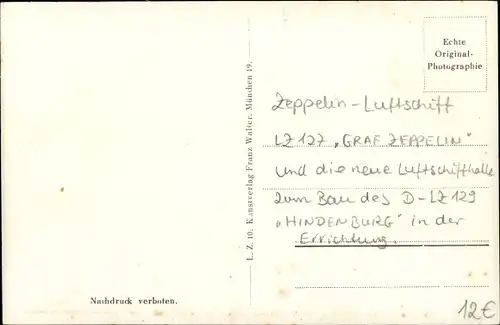 Echte
Original-
Photographie
Zeppelin-Luftschiff
LZ 127 „GRAF ZEPPELIN"
und die neue Luftschiffhalle
zum Bau des D-LZ 129
„HINDENBURG" in der
Errichtung.
L. Z. 10. Kunstverlag Franz Walter, München 19.
Nachdruck verboten.
12€